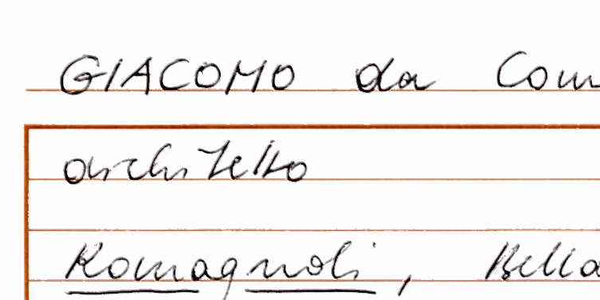 GIACOMO da Com
architetto
Romagnoli, Bella